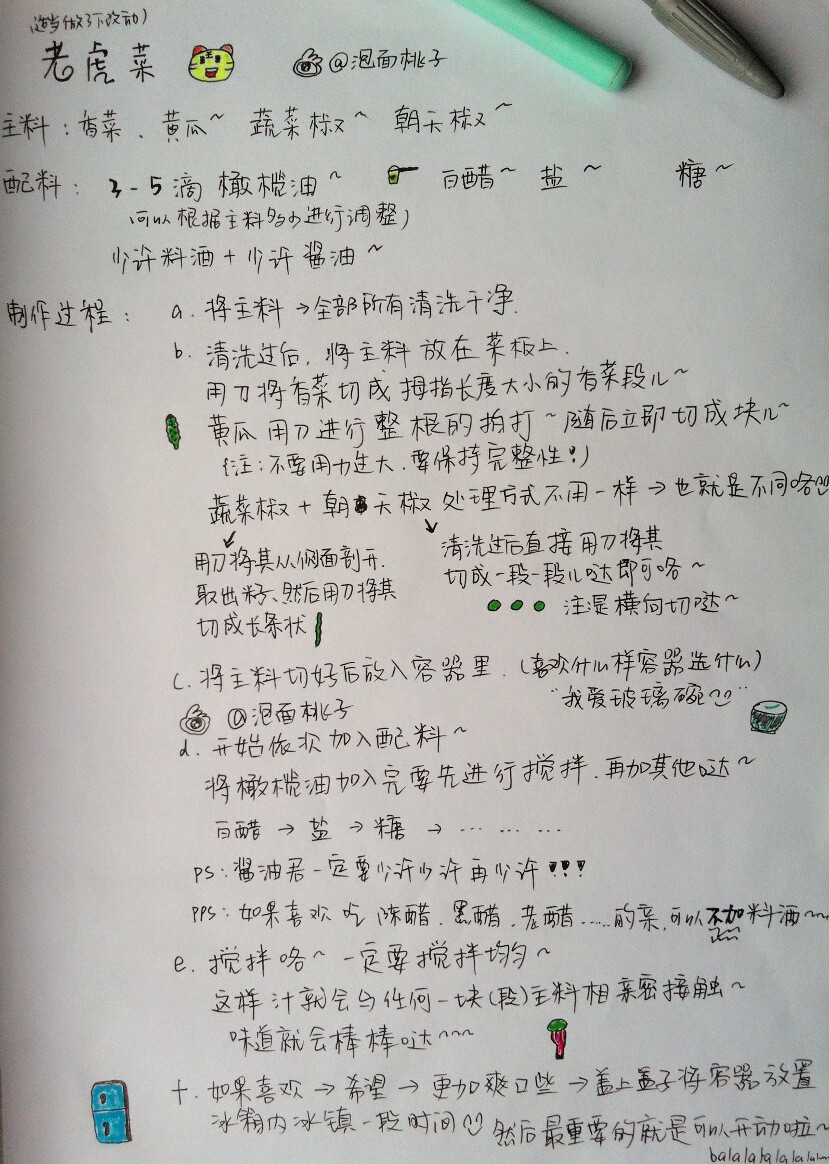 (适当做了下改动)
老虎菜
@泡面桃子
主料：香菜、黄瓜~ 蔬菜椒~ 朝天椒~
配料：3-5滴橄榄油~ 白醋~ 盐~ 糖~
(可以根据主料多少进行调整)
少许料酒+少许酱油~
制作过程：a. 将主料→全部所有清洗干净.
b. 清洗过后，将主料放在菜板上.
用刀将香菜切成拇指长度大小的香菜段儿~
黄瓜用刀进行整根的拍打~随后立即切成块儿~
(注：不要用力过大.要保持完整性!)
蔬菜椒+朝天椒处理方式不用一样→也就是不同咯
用刀将其从侧面剖开.
取出籽、然后用刀将其
切成长条状
清洗过后直接用刀将其
切成一段一段儿哒即可咯~
注是横向切哒~
c. 将主料切好后放入容器里.(喜欢什么样容器选什么)
"我爱玻璃碗"
@泡面桃子
d. 开始依次加入配料~
将橄榄油加入完要先进行搅拌.再加其他哒~
白醋→盐→糖→………
PS：酱油君一定要少许少许再少许!!!
PPS：如果喜欢吃陈醋、黑醋、老醋……的亲,可以不加料酒~
e. 搅拌咯~一定要搅拌均匀~
这样汁就会与任何一块(段)主料相亲密接触~
味道就会棒棒哒~~~
f. 如果喜欢→希望→更加爽口些→盖上盖子将容器放置
冰箱内冰镇一段时间
然后最重要的就是可以开动啦~
balalalalalalala~